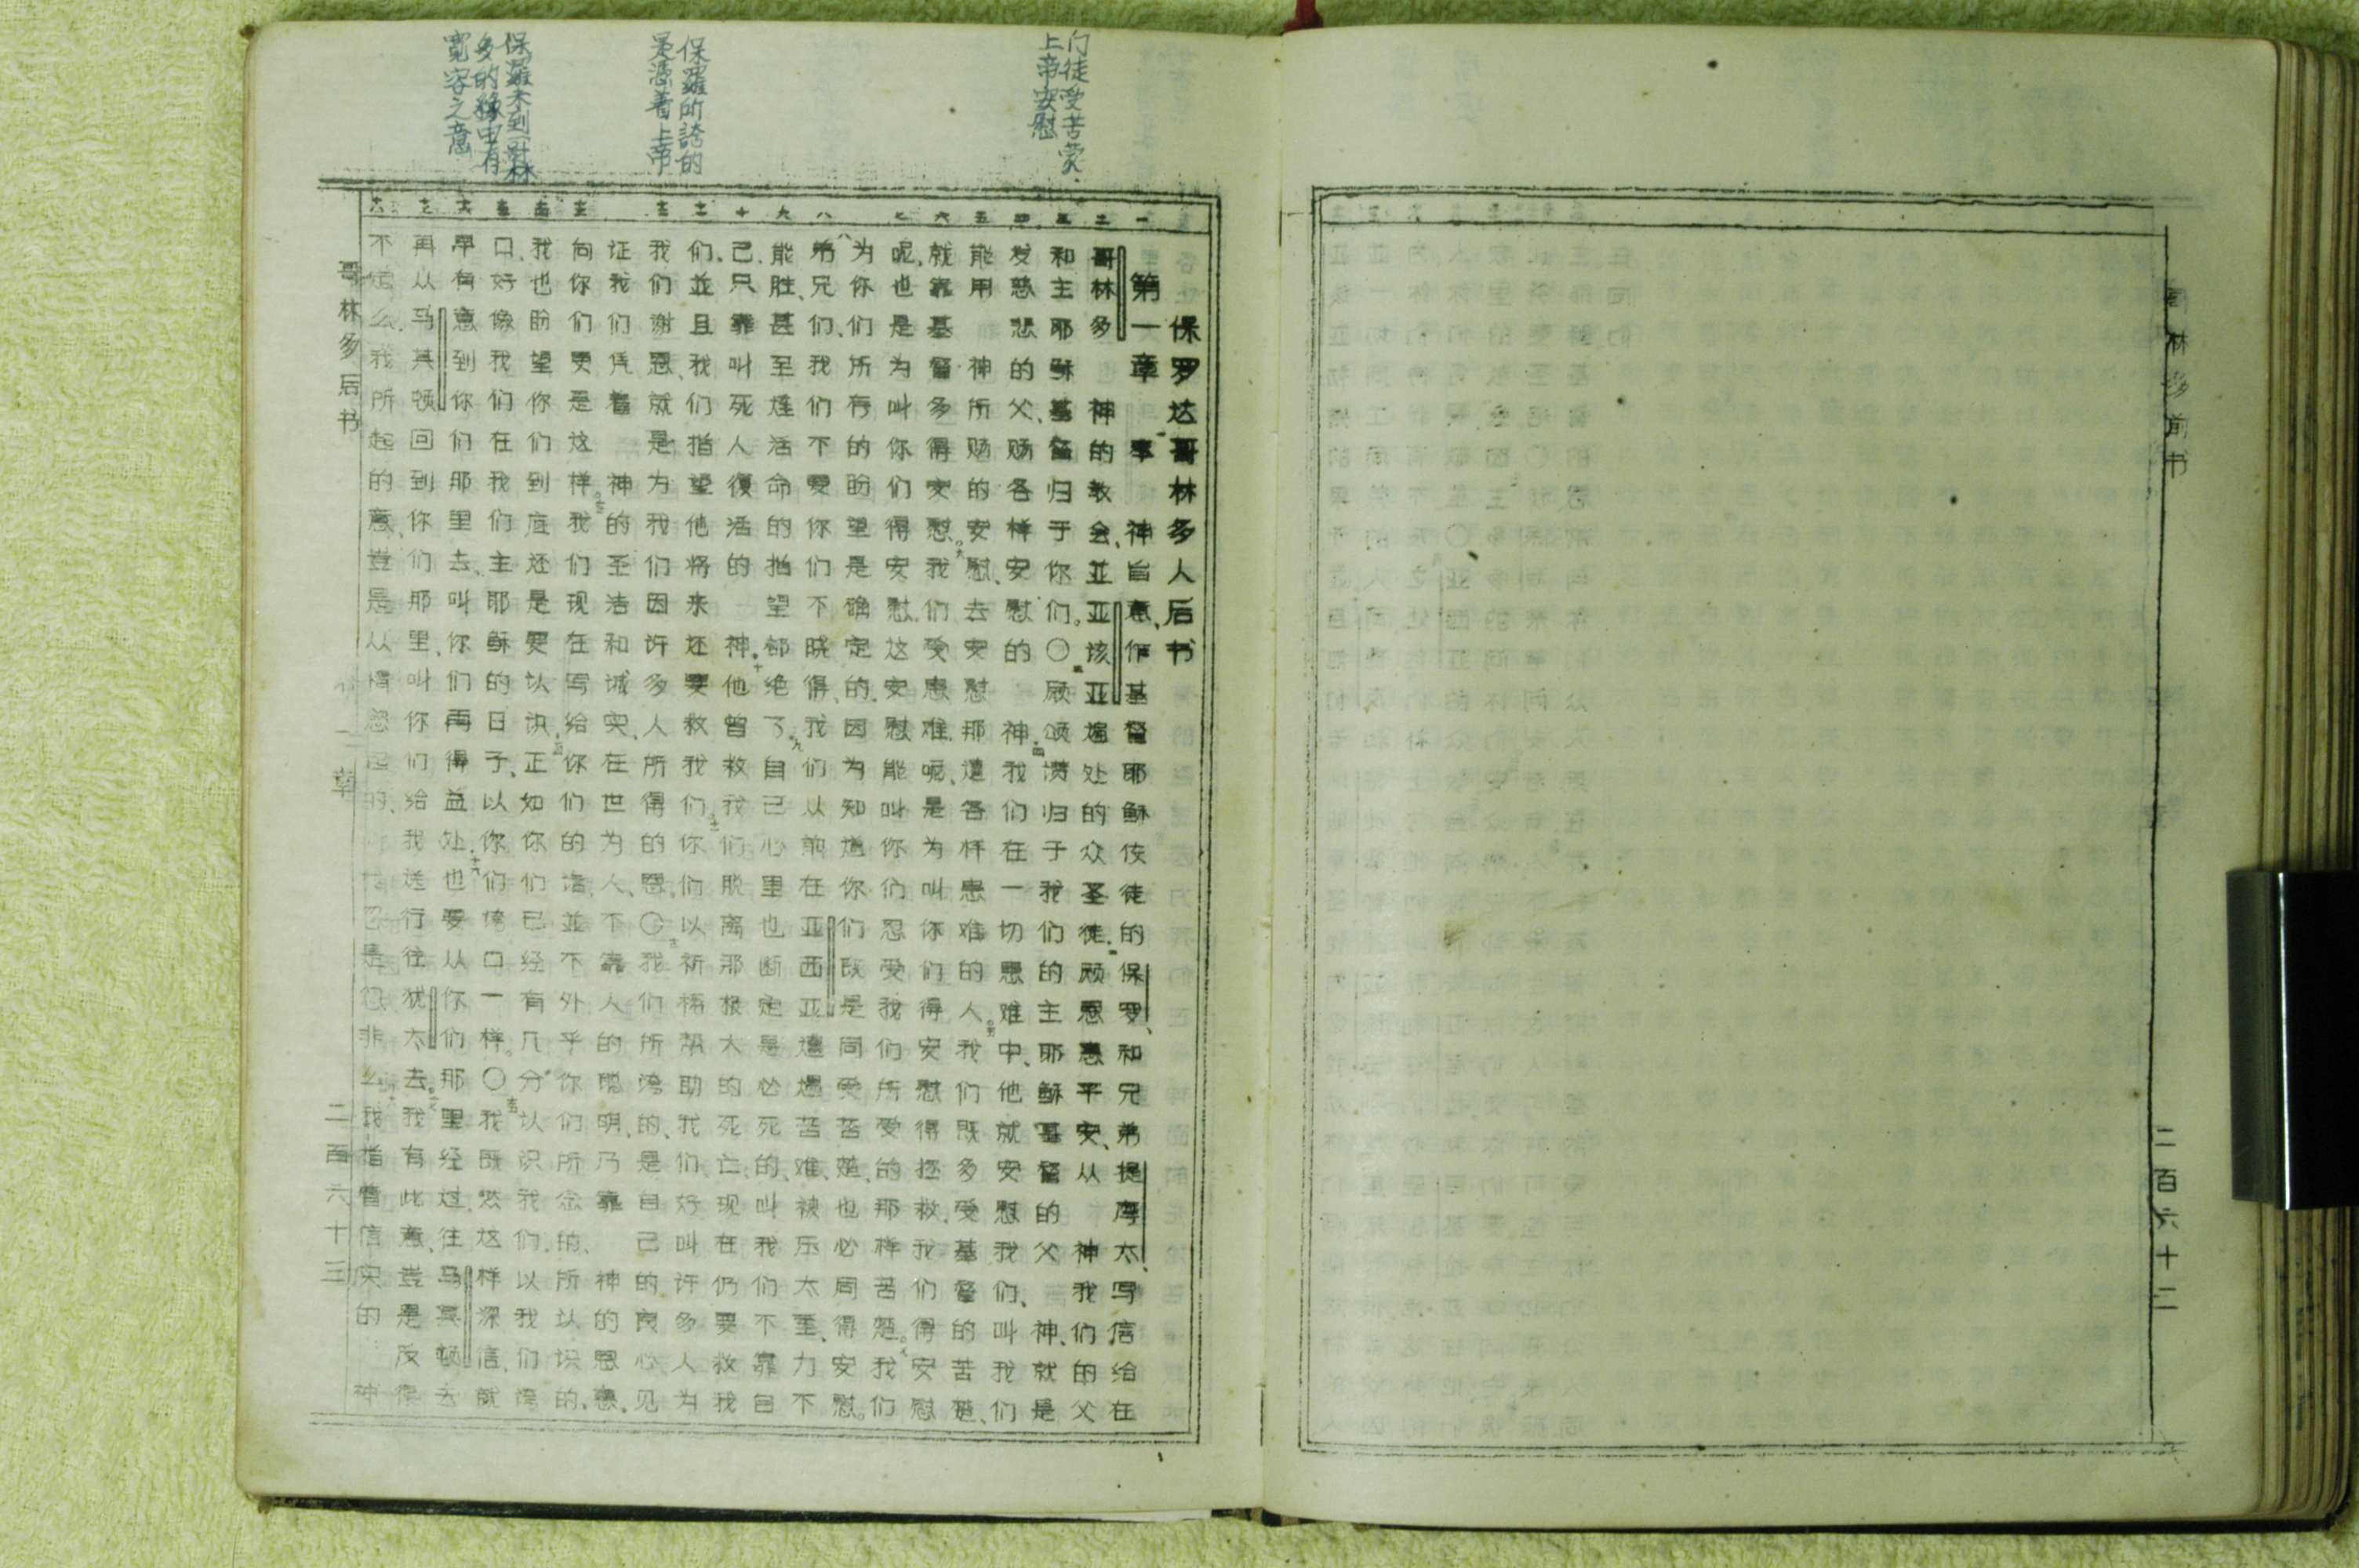 哥林多前书
二百六十二
门徒受苦蒙
上帝安慰
保羅所誇的
是憑着上帝
保羅未到哥林
多的緣由有
寬容之意
保罗达哥林多人后书
第一章 奉 神旨意、作基督耶稣使徒的保罗、和兄弟提摩太、写信给在
哥林多 神的教会、並亚该亚遍处的众圣徒。顾恩惠平安、从 神我们的父
和主耶稣基督归于你们。〇顾颂讃归于我们的主耶稣基督的父神、就是
发慈悲的父、赐各样安慰的 神我们在一切患难中、他就安慰我们、叫我们
能用 神所赐的安慰、去安慰那遭各样患难的人。我们既多受基督的苦楚、
就靠基督多得安慰。我们受患难呢、是为叫你们得安慰得拯救、我们得安慰
呢、也是为叫你们得安慰。这安慰能叫你们忍受我们所受的那样苦楚。我们
为你们所存的盼望是确定的、因为知道你们既是同受苦楚、也必同得安慰。
弟兄们、我们不要你们不晓得、我们从前在亚西亚遭遇苦难、被压太重、力不
能胜、甚至连活命的指望都绝了、自己心里也断定是必死的、叫我们不靠自
己、只靠叫死人復活的 神。他曾救我们脱离那极大的死亡、现在仍要救我
们、並且我们指望他将来还要救我们。你们以祈祷帮助我们、好叫许多人为
我们谢恩、就是为我们因许多人所得的恩。〇我们所誇的、是自己的良心见
证我们凭着 神的圣洁和诚实、在世为人、不靠人的聪明、乃靠 神的恩惠、
向你们更是这样。我们现在写给你们的话、並不外乎你们所念的、所认识的、
我也盼望你们到底还是要认识、正如你们已经有几分认识我们、以我们誇
口、好像我们在我们主耶稣的日子、以你们誇口一样。〇我既然这样深信、就
早有意到你们那里去、叫你们再得益处。也要从你们那里经过、往马其顿去、
再从马其顿回到你们那里、叫你们给我送行往犹太去。我有此意、岂是反復
不定么、我所起的意、岂是从情慾起的、叫我忽是忽非么、我指着信实的 神
哥林多后书
一章
二百六十三